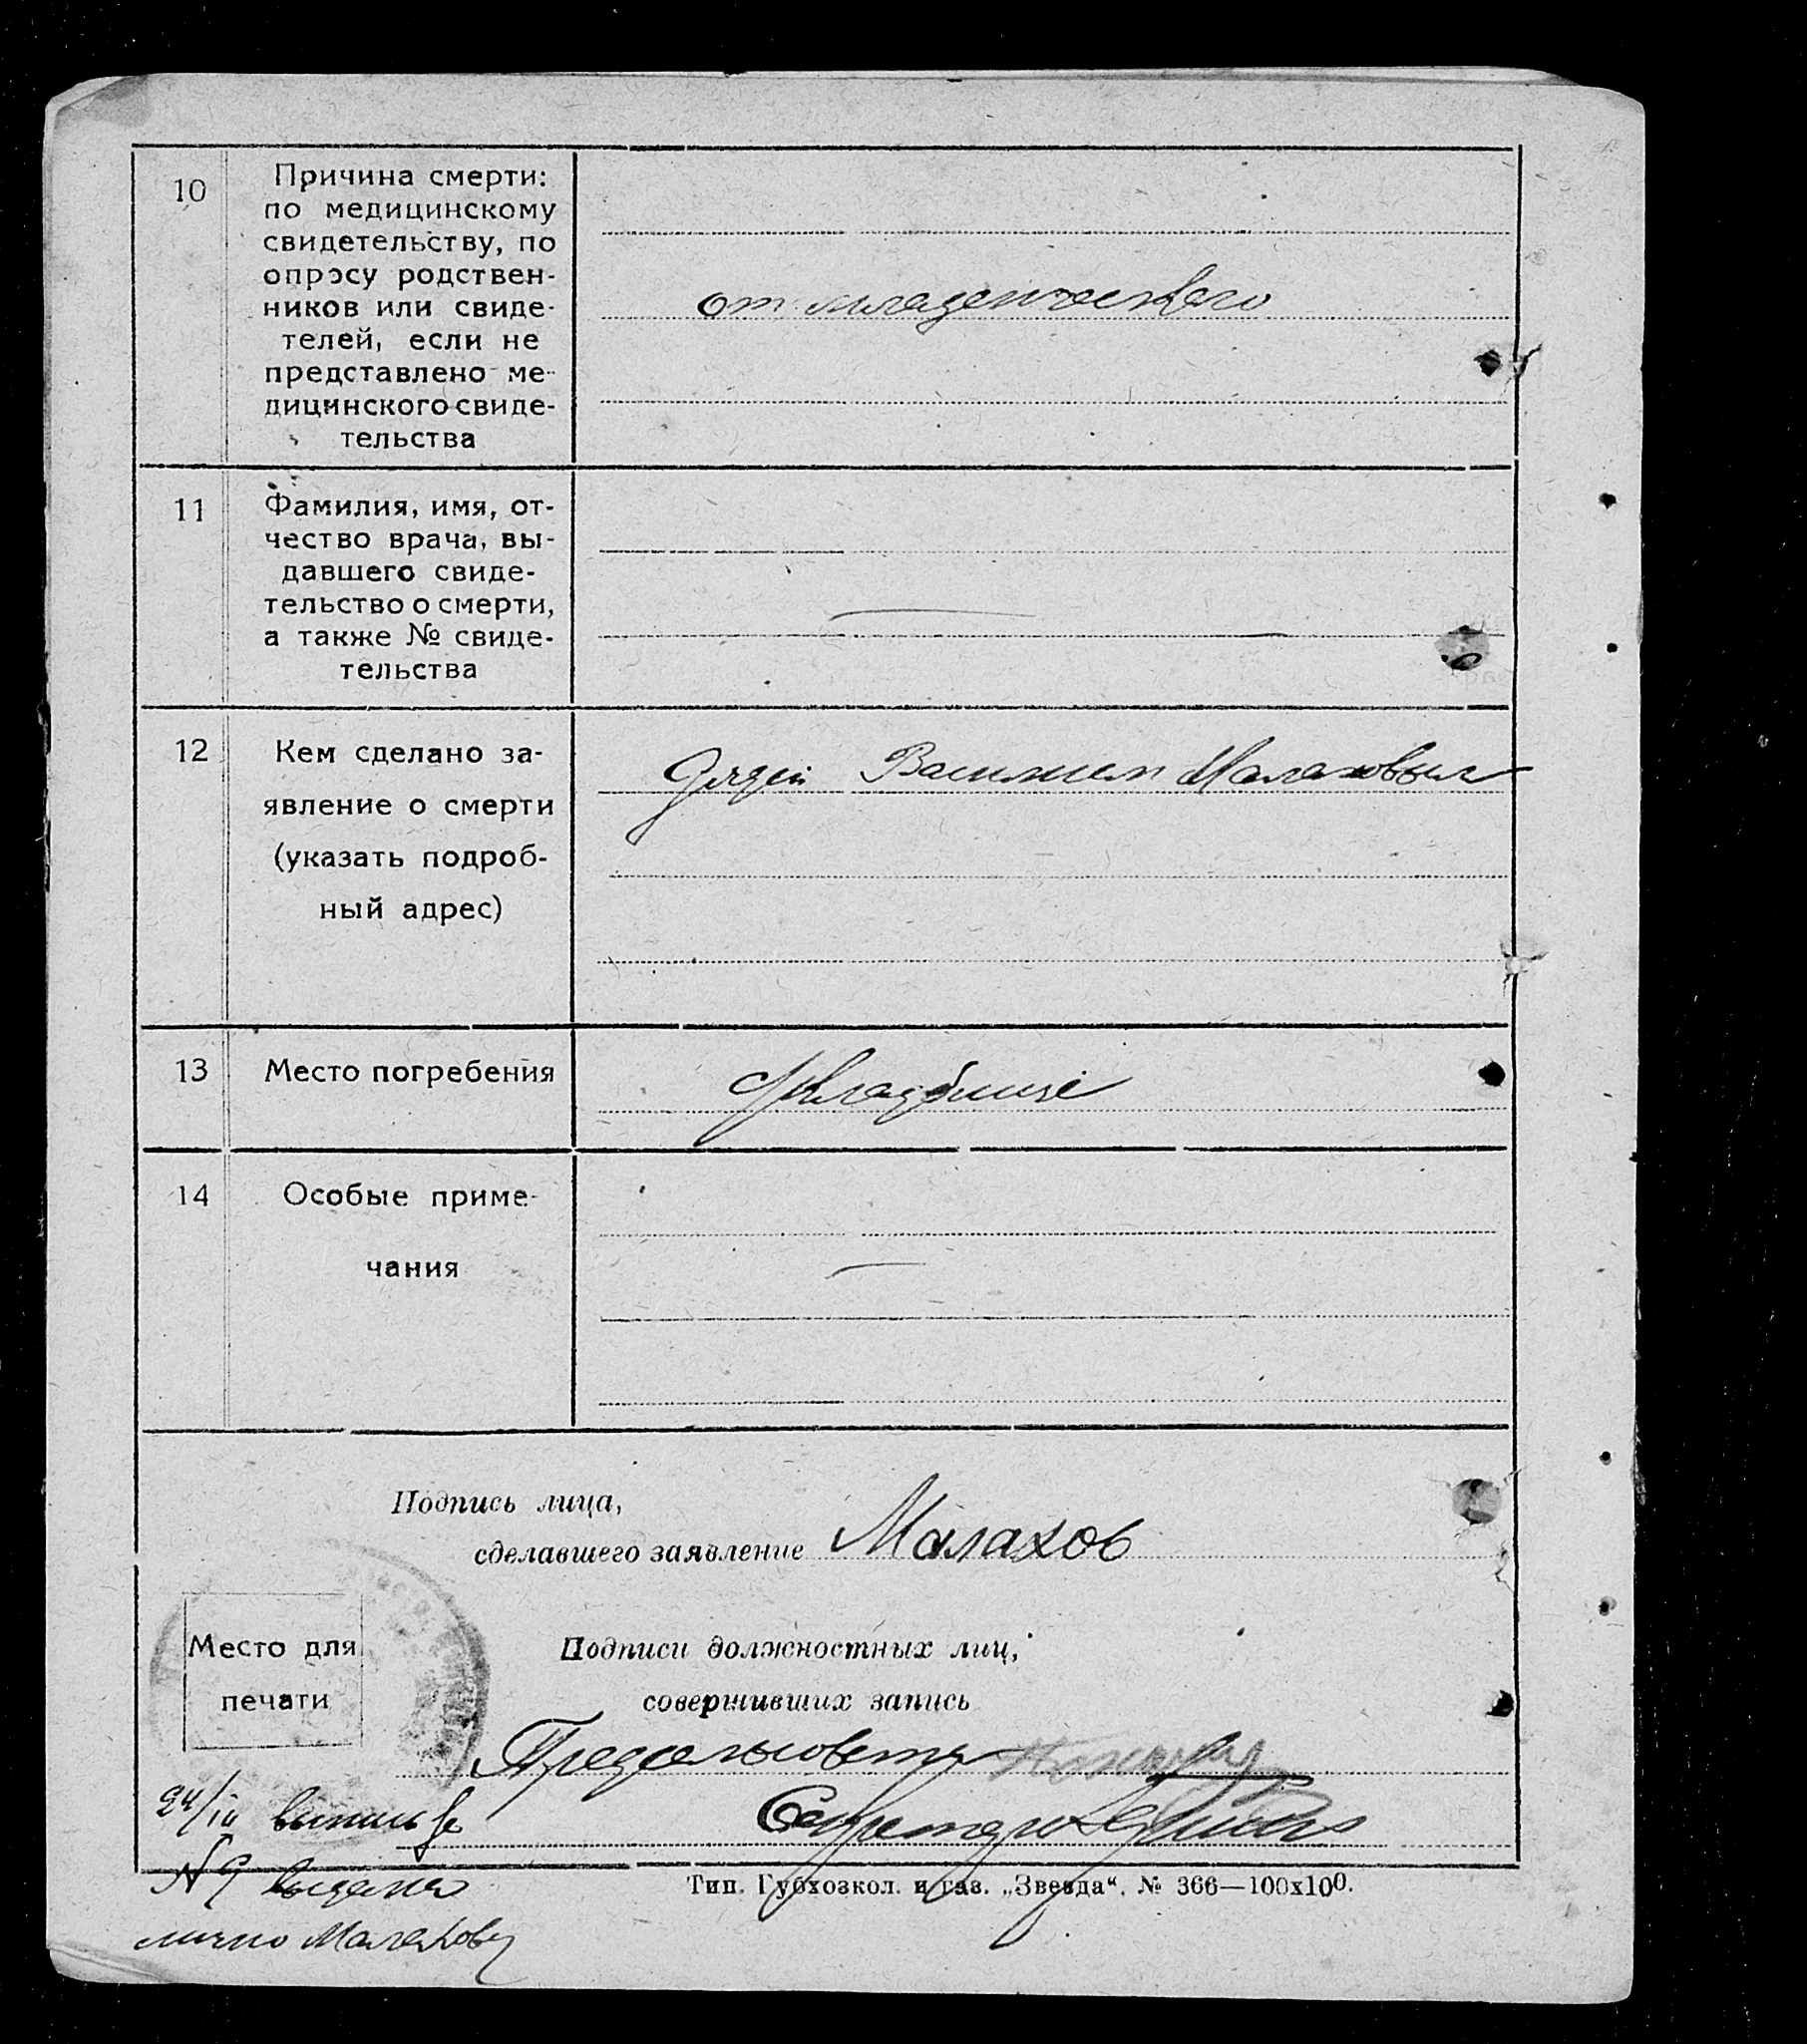 10
Причина смерти:
по медицинскому
свидетельству, по
опросу родствен-
ников или свиде-
телей, если не
представлено ме-
дицинского свиде-
тельства
от младенческого
11
Фамилия, имя, от-
чество врача, вы-
давшего свиде-
тельство о смерти,
а также № свиде-
тельства
12
Кем сделано за-
явление о смерти
(указать подроб-
ный адрес)
Дядей Василием Малаховым
13
Место погребения
Кладбище
14
Особые приме-
чания
Подпись лица,
сделавшего заявление Малахов
Место для
печати
Подписи должностных лиц,
совершивших запись
Секретарь
24/
№ 9 выдана
лично Малахову
Тип. Губхозкол. и газ. „Звезда“. № 366—100х100.